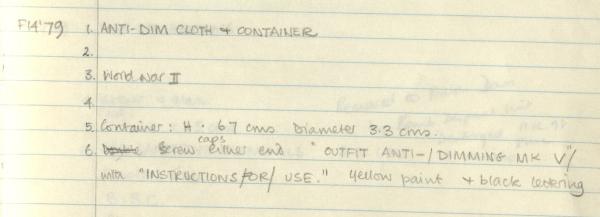 F14'79 1. ANTI-DIM CLOTH & CONTAINER
2.
3. World War II
4.
5. Container: H. 6.7 cms Diameter 3.3 cms.
6. Screw caps either end "OUTFIT ANTI-/DIMMING MK V"/
with "INSTRUCTIONS/FOR/USE." Yellow paint & black lettering